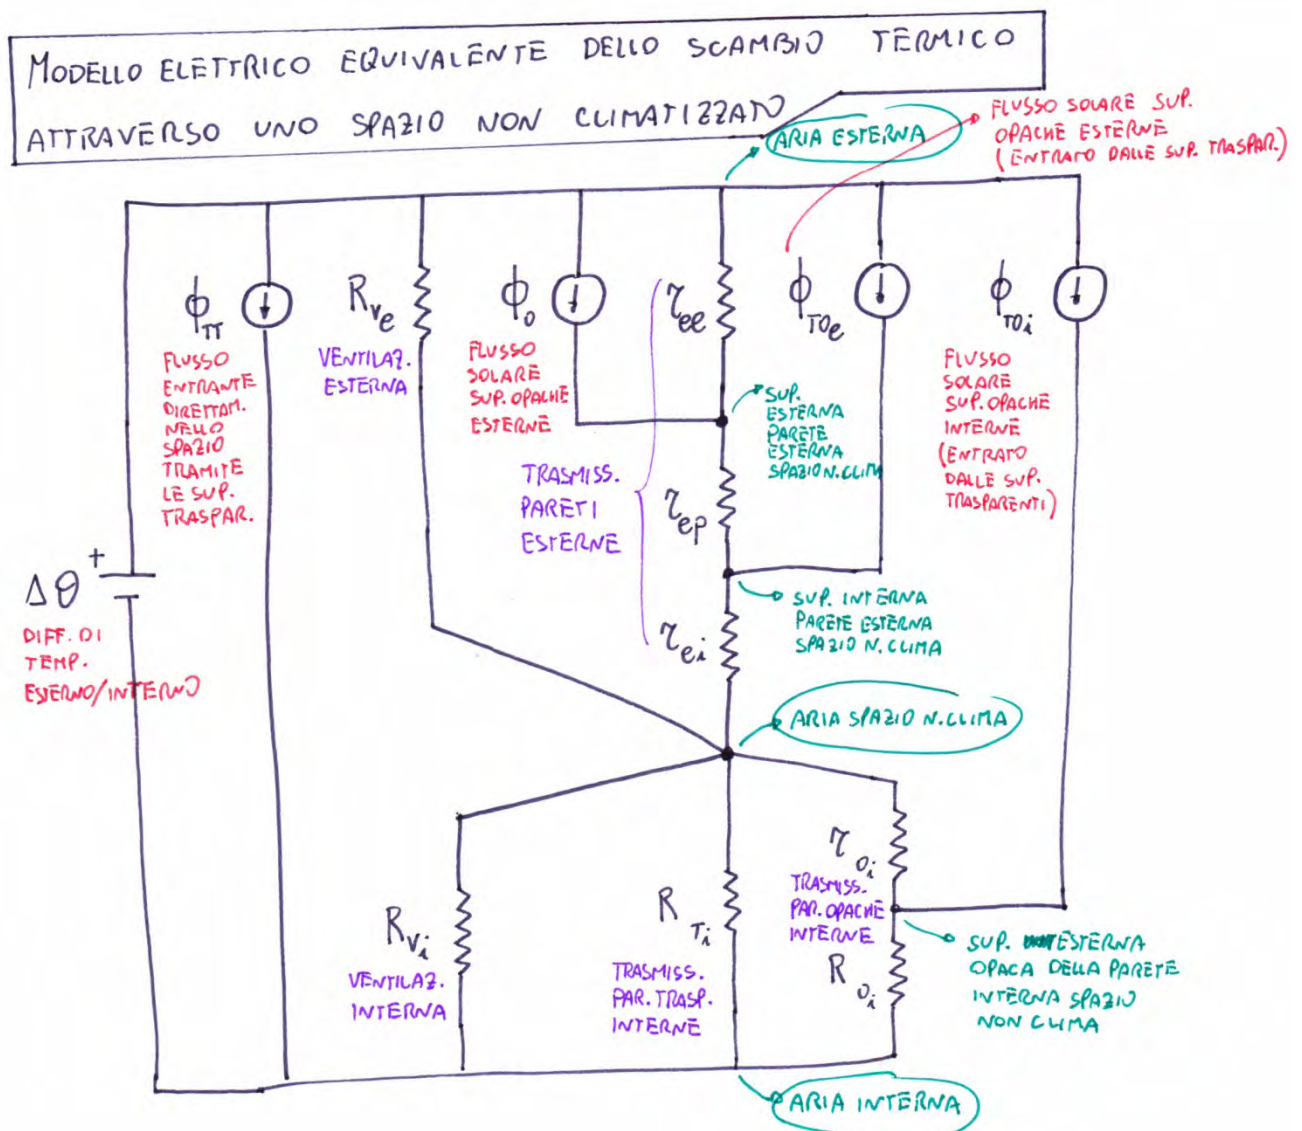 MODELLO ELETTRICO EQUIVALENTE DELLO SCAMBIO TERMICO
ATTRAVERSO UNO SPAZIO NON CLIMATIZZATO
ARIA ESTERNA
FLUSSO SOLARE SUP.
OPACHE ESTERNE
(ENTRATO DALLE SUP. TRASPAR.)
ϕTT
FLUSSO
ENTRANTE
DIRETTAM.
NELLO
SPAZIO
TRAMITE
LE SUP.
TRASPAR.
Rve
VENTILAZ.
ESTERNA
ϕo
FLUSSO
SOLARE
SUP. OPACHE
ESTERNE
ree
ϕTOe
ϕTOi
FLUSSO
SOLARE
SUP. OPACHE
INTERNE
(ENTRATO
DALLE SUP.
TRASPARENTI)
SUP.
ESTERNA
PARETE
ESTERNA
SPAZIO N. CLIM
TRASMISS.
PARETI
ESTERNE
rep
rei
SUP. INTERNA
PARETE ESTERNA
SPAZIO N. CLIMA
Δθ
+
DIFF. DI
TEMP.
ESTERNO/INTERNO
ARIA SPAZIO N. CLIMA
Rvi
VENTILAZ.
INTERNA
RTi
TRASMISS.
PAR. TRASP.
INTERNE
roi
TRASMISS.
PAR. OPACHE
INTERNE
Roi
SUP. ESTERNA
OPACA DELLA PARETE
INTERNA SPAZIO
NON CLIMA
ARIA INTERNA